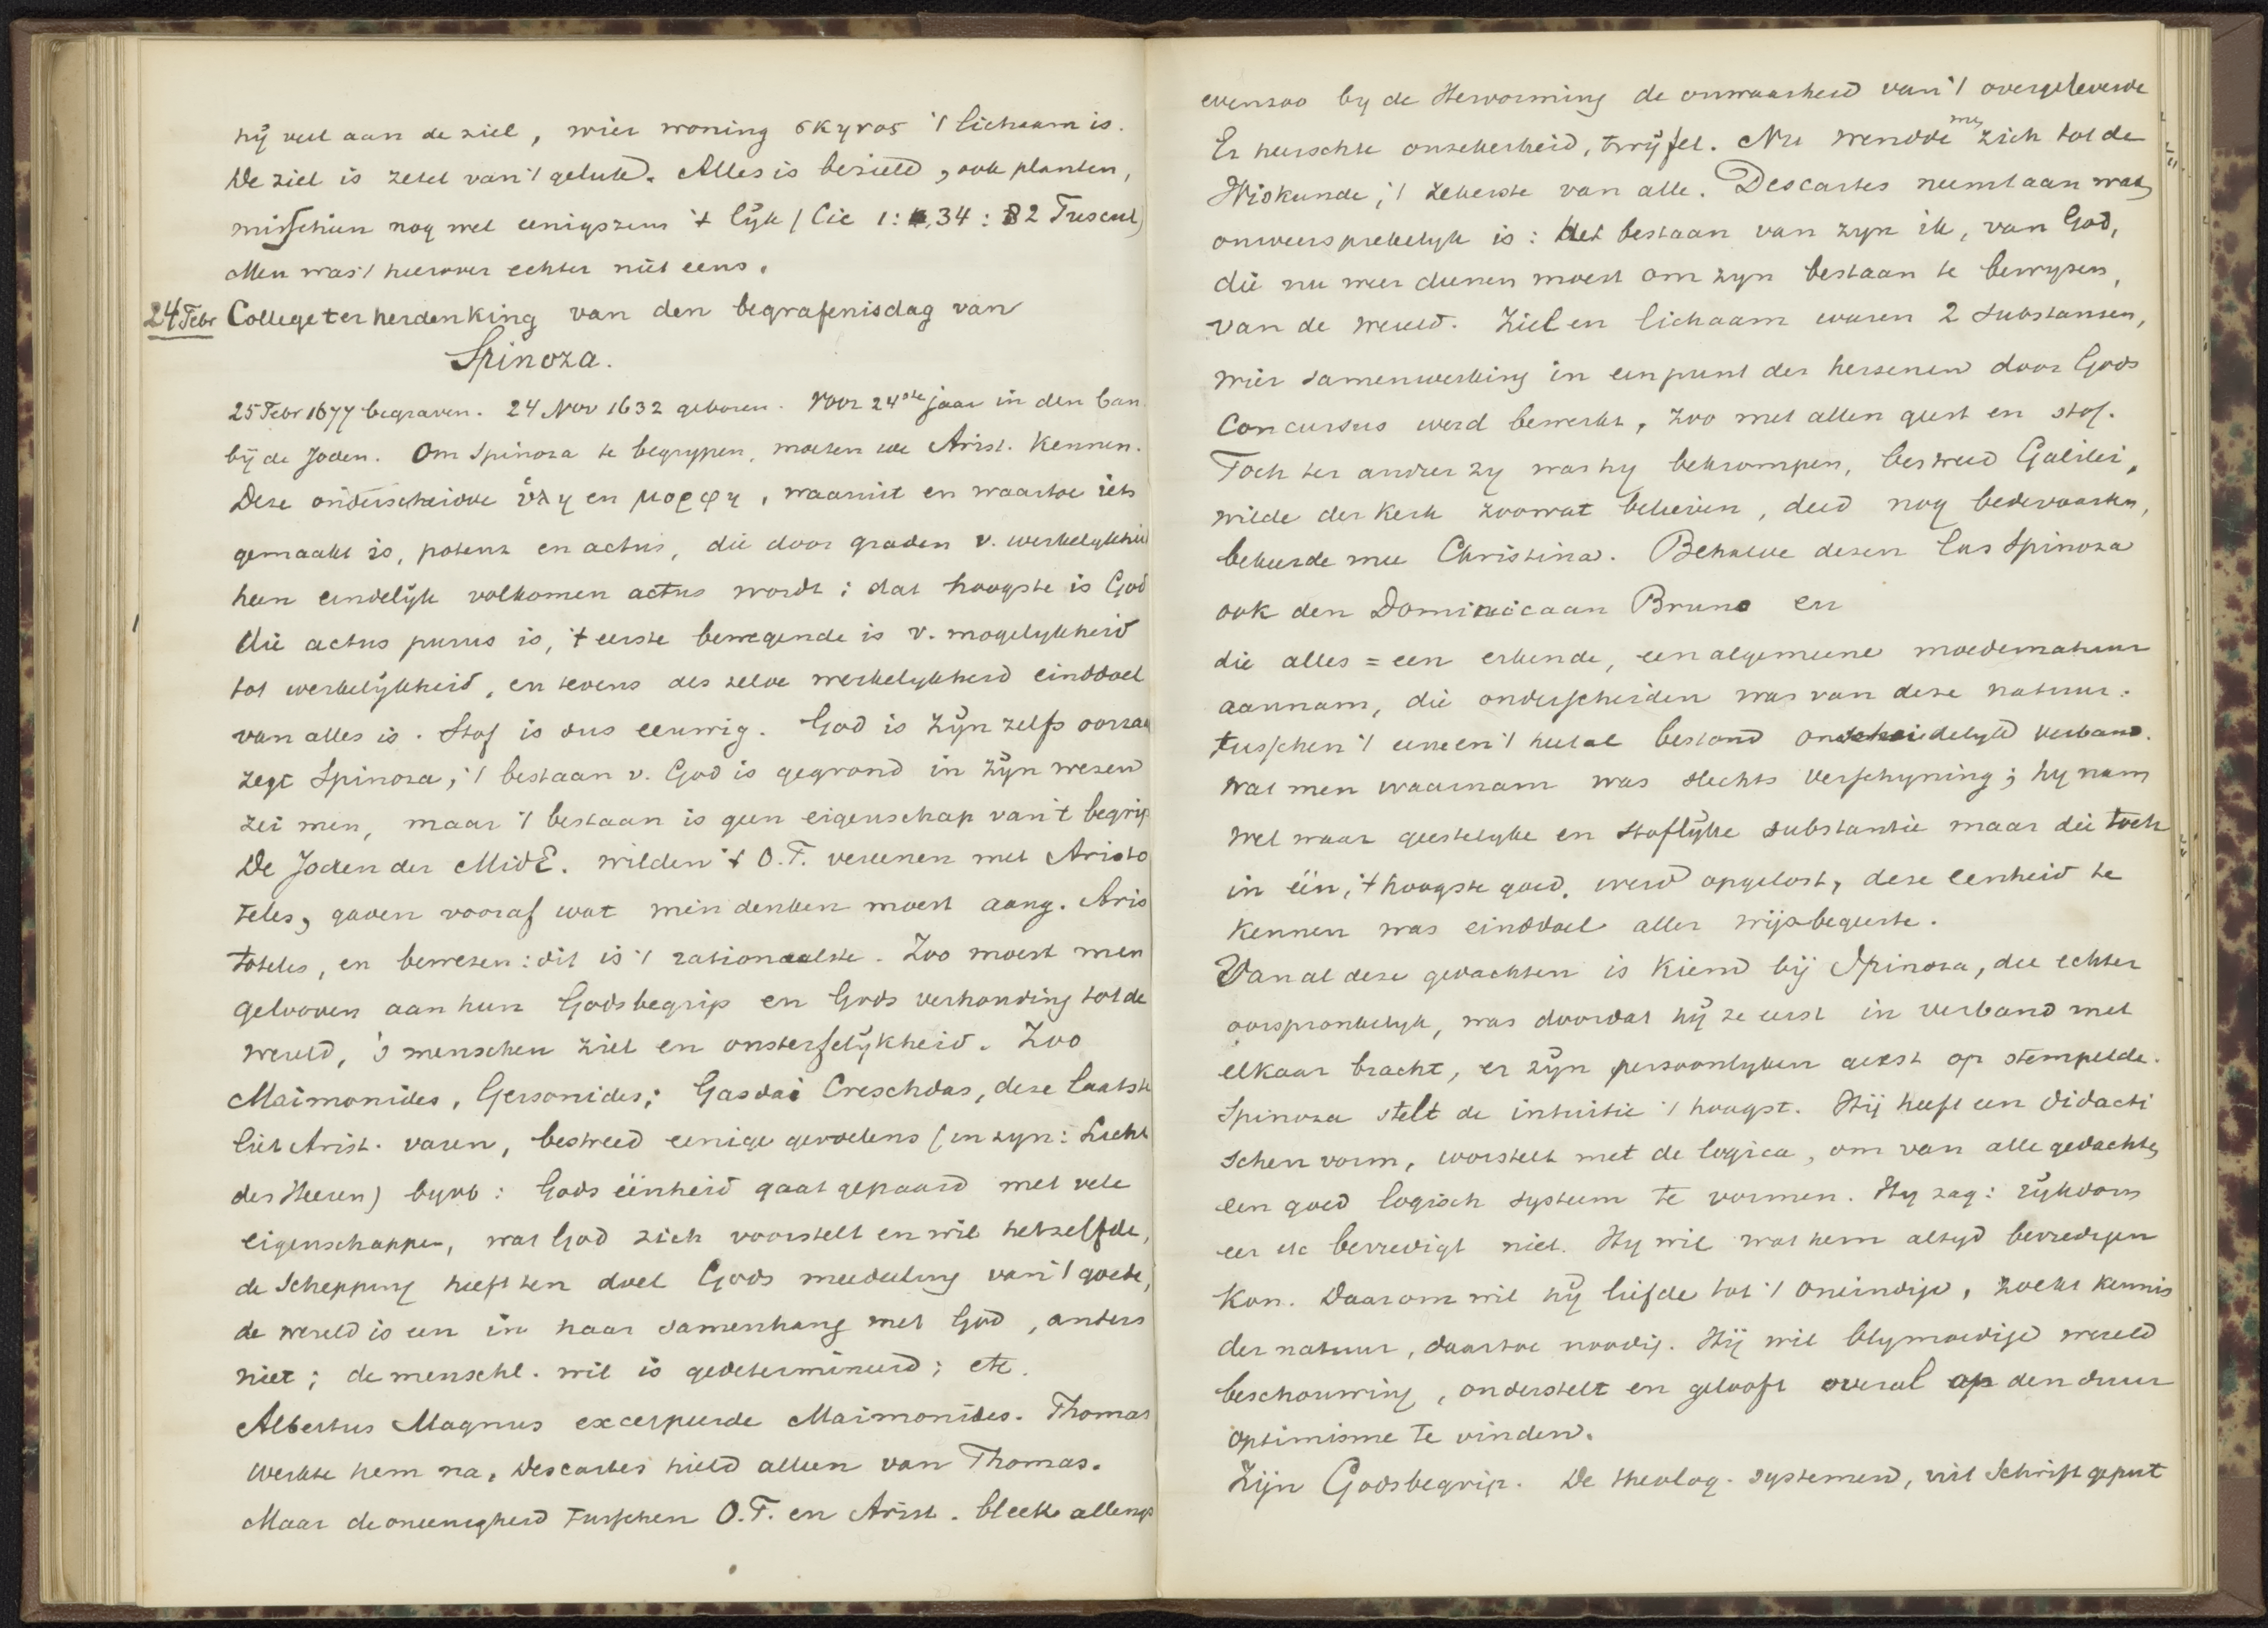 hij veel aan de ziel, wier woning σκηνος 't lichaam is.
De ziel is zetel van 't geluk. Alles is bezield, ook planten,
misschien nog wel eenigszins 't lijk (Cic 1: 34: 82 Tuscul)
Men was 't hierover echter niet eens.
24 Febr College ter herdenking van den begrafenisdag van
Spinoza.
25 Febr 1677 begraven. 24 Nov 1632 geboren. Voor 24ste jaar in den ban
bij de Joden. Om Spinoza te begrypen, moeten we Arist. kennen.
Deze onderscheidde ὑλη en μορφη, waaruit en waartoe iets
gemaakt is, potenz en actus, die door graden v. werkelykheid
heen eindelijk volkomen actus wordt; dat hoogste is God
die actus purus is, 't eerste bewegende is v. mogelykheid
tot werkelijkheid, en tevens als zelve werkelykheid einddoel
van alles is. Stof is dus eeuwig. God is zijn zelfs oorzaak
zegt Spinoza; 't bestaan v. God is gegrond in zijn wezen
zei men, maar 't bestaan is geen eigenschap van 't begrip
De Joden der MidE. wilden 't O.T. vereenen met Aristo
teles, gaven vooraf wat men denken moest aang. Aris
toteles, en bewezen: dit is 't rationaalste. Zoo moest men
gelooven aan hun Godsbegrip en Gods verhouding tot de
wereld, 's menschen ziel en onsterfelijkheid. Zoo
Maimonides, Gersonides; Gasdai Creschdas, deze laatste
liet Arist. varen, bestreed eenige gevoelens (in zyn: Licht
des Heeren) byvb: Gods éénheid gaat gepaard met vele
eigenschappen, wat God zich voorstelt en wil hetzelfde,
de Schepping heeft ten doel Gods mededeeling van 't goede,
de wereld is een in haar samenhang met God, anders
niet; de menschl. wil is gedetermineerd; etc.
Albertus Magnus excerpeerde Maimonides. Thomas
werkte hem na, Descartes hield alleen van Thomas.
Maar de oneenigheid tusschen O.T. en Arist. bleek allengs
evenzoo by de Hervorming de onwaarheid van 't overgeleverde
Er heerschte onzekerheid, twijfel. Nu wendde men zich tot de
Wiskunde, 't zekerste van alle. Descartes neemt aan wat
onweersprekelyk is: het bestaan van zyn ik, van God,
die nu weer dienen moest om zyn bestaan te bewyzen,
van de wereld. Ziel en lichaam waren 2 substanzen,
wier samenwerking in een punt der hersenen door Gods
Concursus werd bewerkt, zoo met allen geest en stof.
Toch ter andrer zy was hy bekrompen, bestreed Galilei,
wilde der kerk zoowat believen, deed nog bedevaarten,
bekeerde mee Christina. Behalve dezen las Spinoza
ook den Dominicaan Bruno en
die alles = een erkende, een algemeene moedernatuur
aannam, die onderscheiden was van deze natuur:
tusschen 't eene en 't heelal bestond onscheidelyk verband.
Wat men waarnam was slechts verschyning; hy nam
wel waar geestelyke en stoflijke substantie maar die toch
in één, 't hoogste goed, werd opgelost, deze eenheid te
kennen was einddoel aller wijsbegeerte.
Van al deze gedachten is kiem bij Spinoza, die echter
oorspronkelyk, was doordat hij ze eerst in verband met
elkaar bracht, er zijn persoonlyken geest op stempelde.
Spinoza stelt de intuitie 't hoogst. Hij heeft een didacti
schen vorm, worstelt met de logica, om van alle gedachten
een goed logisch systeem te vormen. Hy zag: rijkdom
eer etc bevredigt niet. Hy wil wat hem altyd bevredigen
kon. Daarom wil hij liefde tot 't oneindige, zoekt kennis
der natuur, daartoe noodig. Hij wil blymoedige wereld
beschouwing, onderstelt en gelooft overal op den duur
optimisme te vinden.
Zijn Godsbegrip. De theolog. systemen, uit Schrift geput